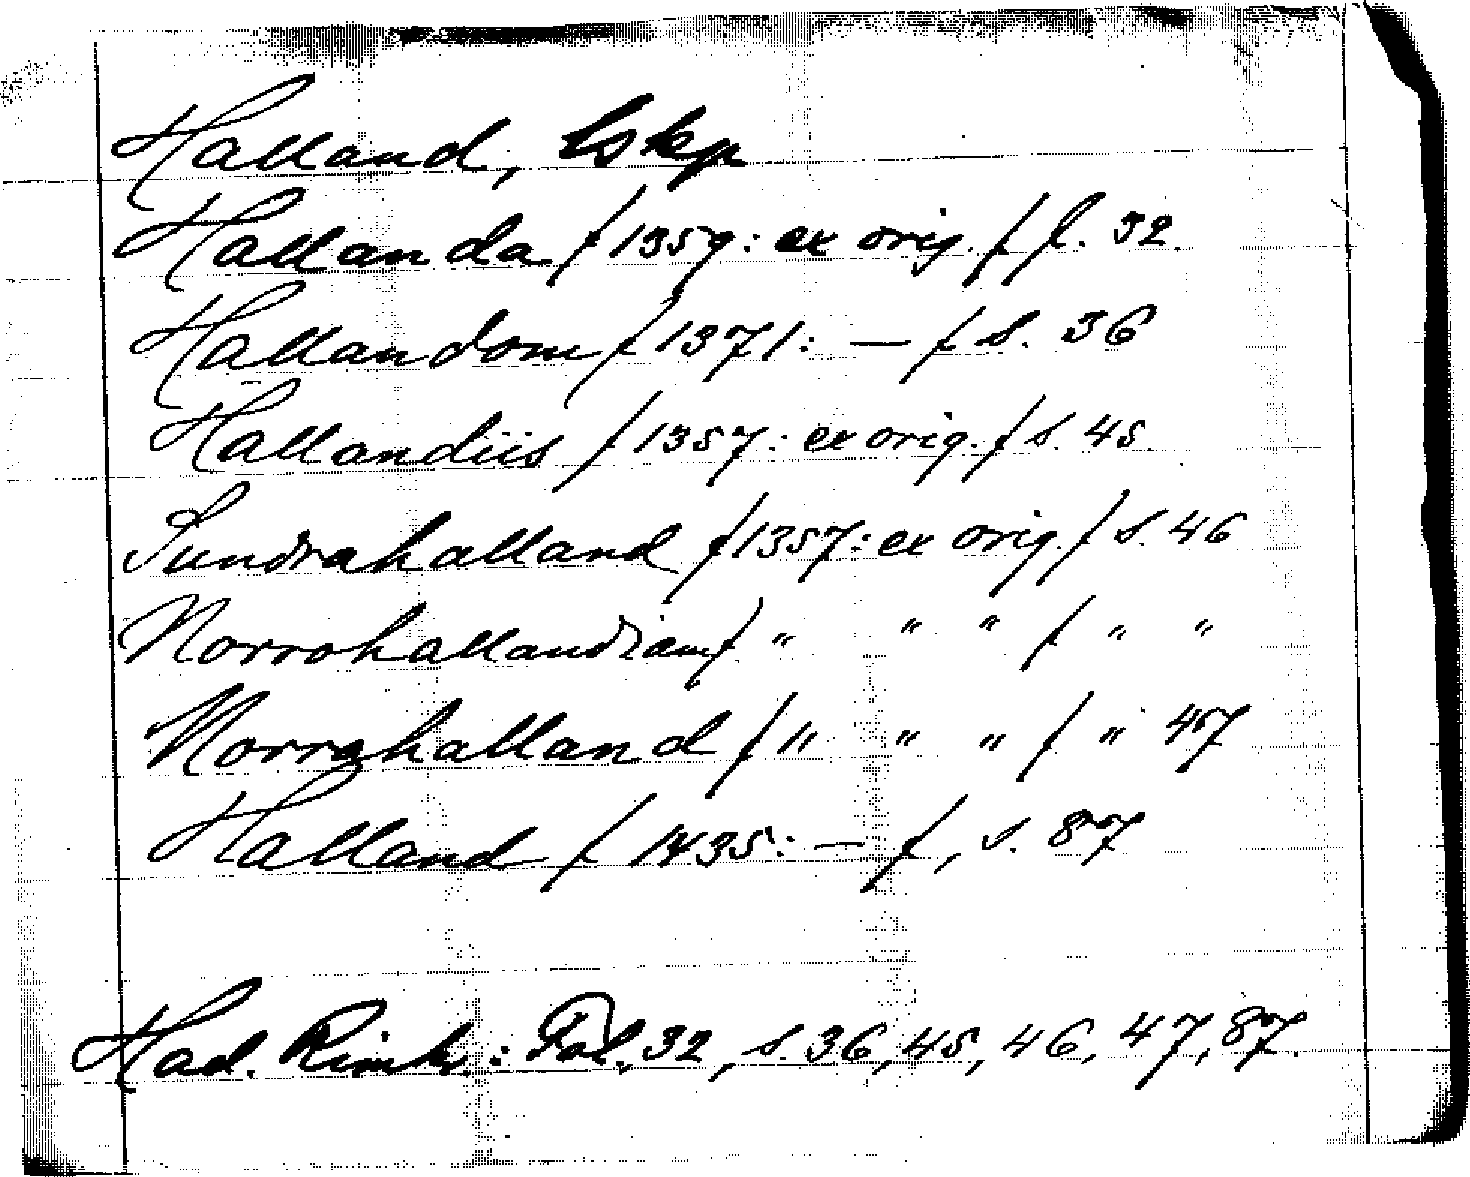 Halland, lskp
Hallanda / 1359: ex orig. / f. 32
Hallandom / 1371: — / s. 36
Hallandiis / 1357: ex orig. / s. 45
Sundrahalland / 1357: ex orig. / s. 46
Norrohallandiam / " " " / " "
Norrahalland / " " " / " 47
Halland / 1435: — /, s. 87
Had. Rimkr.: Fol. 32, s. 36, 45, 46, 47, 87.